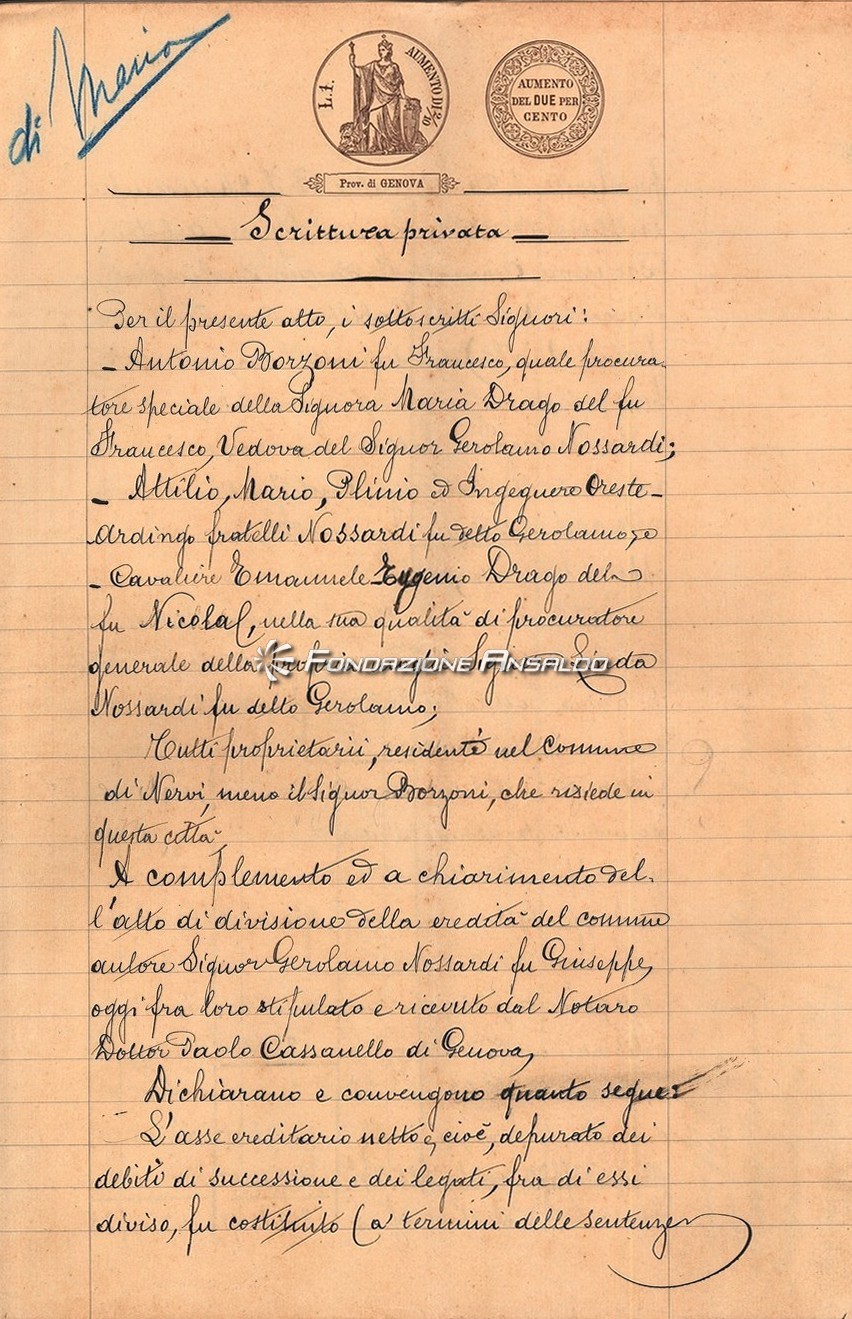 di Maria
L. 1.
AUMENTO DI 2/10
AUMENTO
DEL DUE PER
CENTO
Prov. di GENOVA
Scrittura privata
Per il presente atto, i sottoscritti Signori:
- Antonio Borzoni fu Francesco, quale procura-
tore speciale della Signora Maria Drago del fu
Francesco, Vedova del Signor Gerolamo Nossardi;
- Attilio, Mario, Plinio ed Ingegnere Oreste-
Ardingo fratelli Nossardi fu detto Gerolamo, e
- Cavaliere Emanuele Eugenio Drago del
fu Nicola, nella sua qualità di procuratore
generale della propria moglie Signora Linda
FONDAZIONE ANSALDO
Nossardi fu detto Gerolamo;
Tutti proprietarii, residenti nel Comune
di Nervi, meno il Signor Borzoni, che risiede in
questa città,
A complemento ed a chiarimento del-
l'atto di divisione della eredità del comune
autore Signor Gerolamo Nossardi fu Giuseppe,
oggi fra loro stipulato e ricevuto dal Notaro
Dottor Paolo Cassanello di Genova,
Dichiarano e convengono quanto segue:
L'asse ereditario netto e, cioè, depurato dei
debiti di successione e dei legati, fra di essi
diviso, fu costituito (a termini delle sentenze